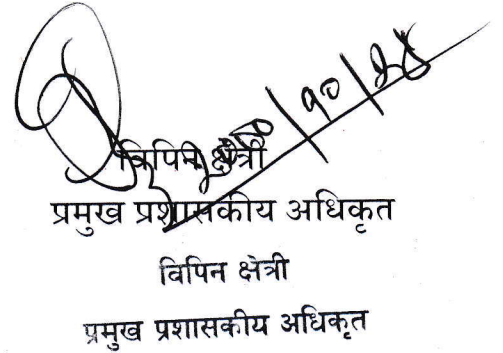 विपिन क्षेत्री
प्रमुख प्रशासकीय अधिकृत
विपिन क्षेत्री
प्रमुख प्रशासकीय अधिकृत